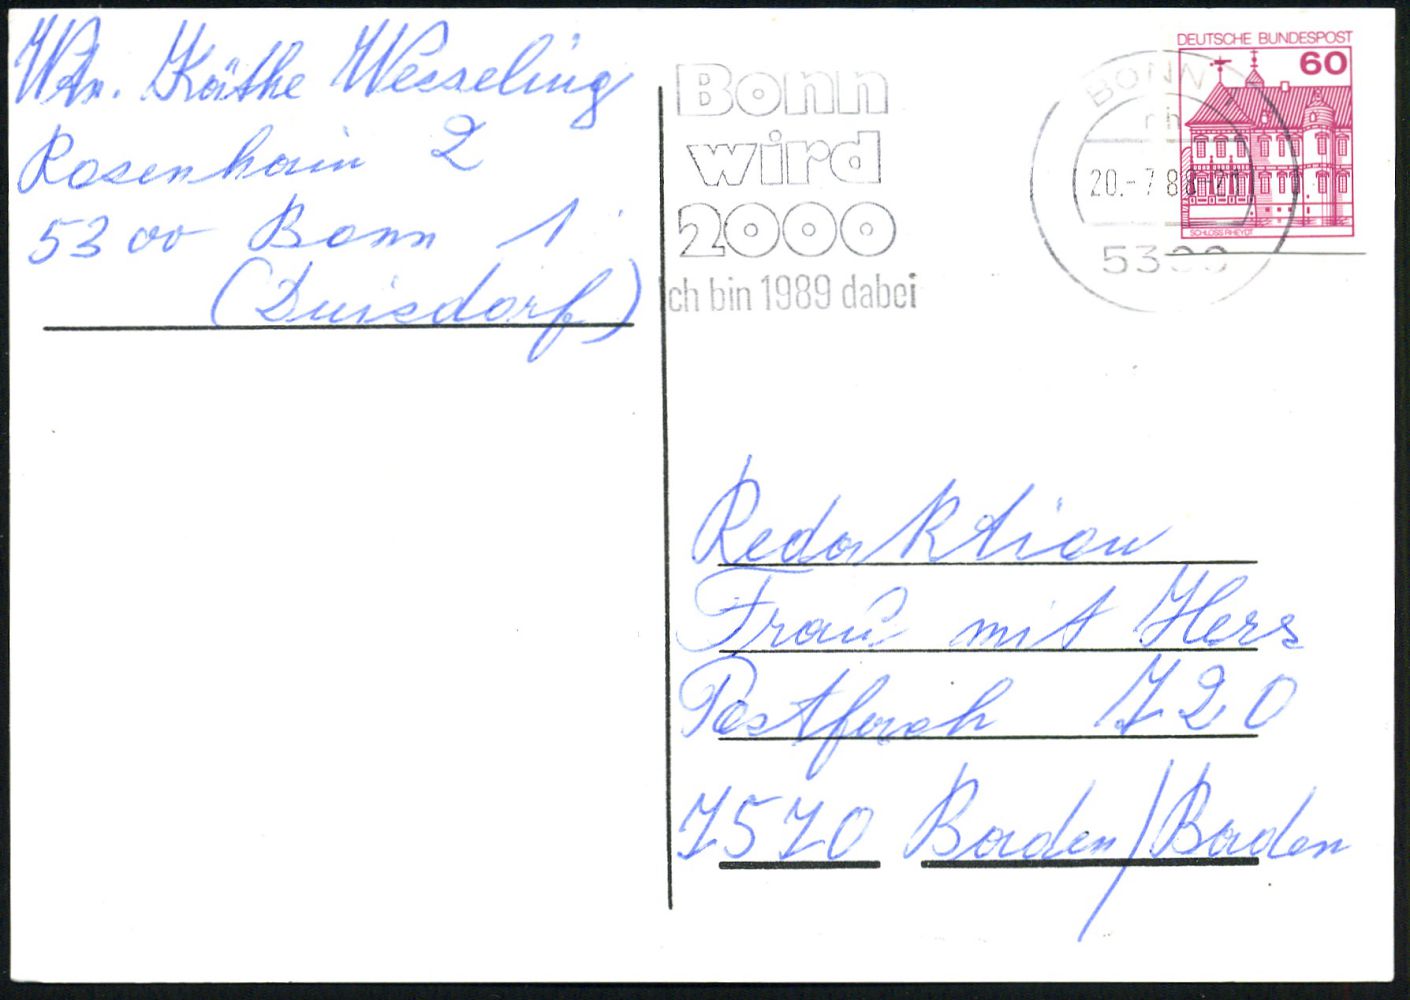 Wtw. Käthe Wesseling
Rosenhain 2
5300 Bonn 1
(Duisdorf)
Bonn
wird
2000
ch bin 1989 dabei
BONN
20.-7.88-21
5300
DEUTSCHE BUNDESPOST
60
SCHLOSS RHEYDT
Redaktion
Frau mit Herz
Postfach 720
7570 Baden/Baden